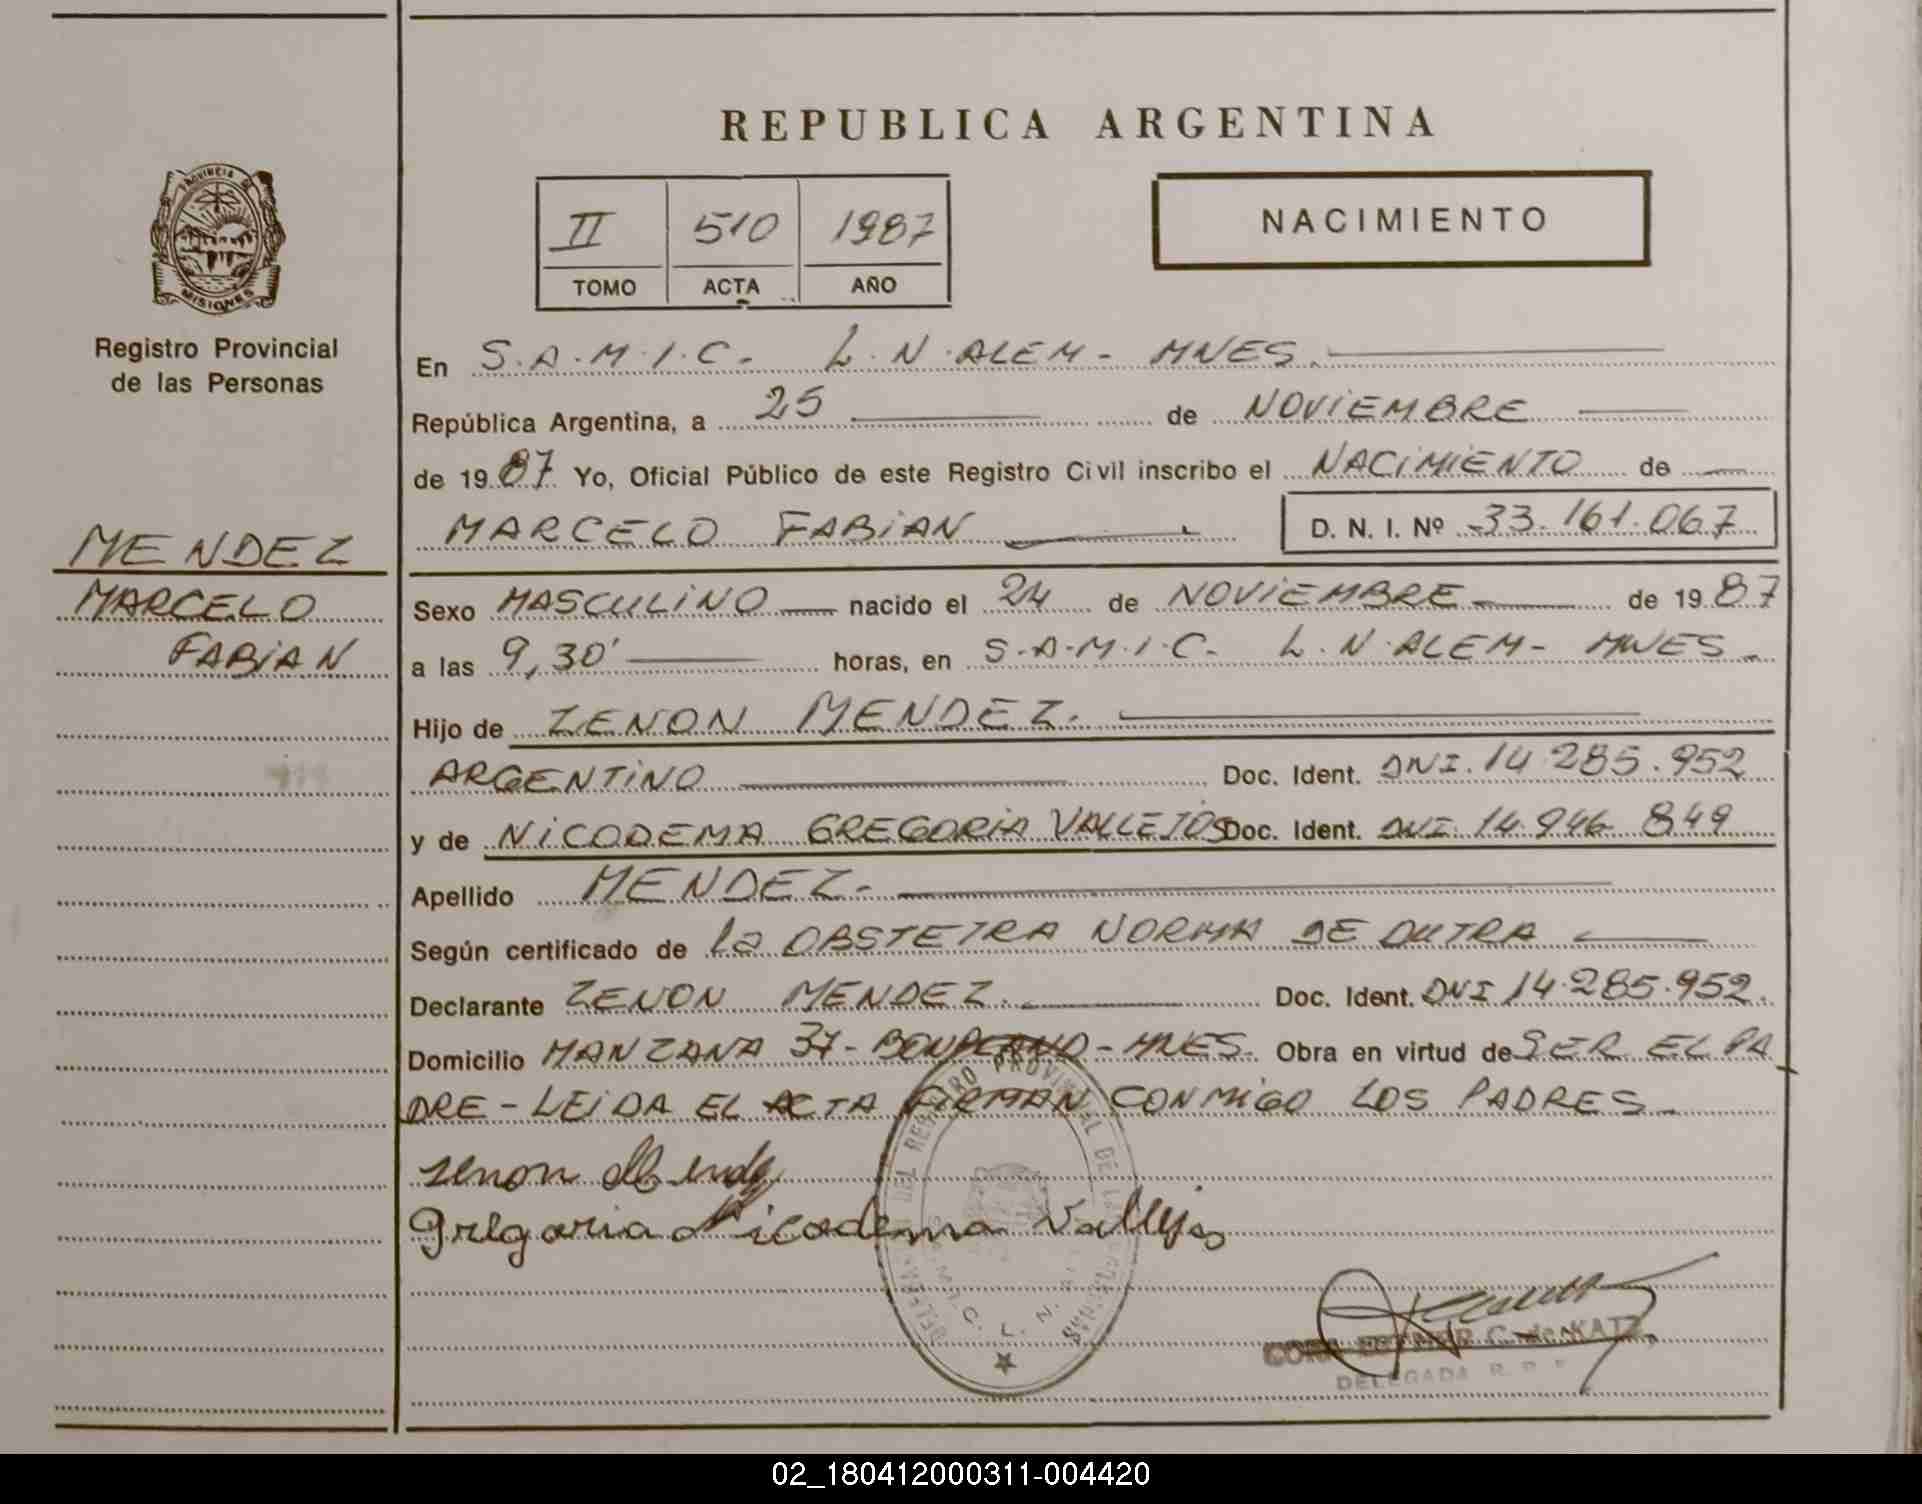 REPUBLICA ARGENTINA
PROVINCIA DE
MISIONES
Registro Provincial
de las Personas
II 510 1987
TOMO ACTA AÑO
NACIMIENTO
MENDEZ
MARCELO
FABIAN
En S.A.M.I.C. L.N.ALEM- MNES.
República Argentina, a 25 de NOVIEMBRE
de 1987 Yo, Oficial Público de este Registro Civil inscribo el NACIMIENTO de
MARCELO FABIAN D. N. I. Nº 33.161.067
Sexo MASCULINO nacido el 24 de NOVIEMBRE de 1987
a las 9,30' horas, en S.A.M.I.C. L.N.ALEM- MNES.
Hijo de ZENON MENDEZ.
ARGENTINO Doc. Ident. DNI. 14.285.952
y de NICODEMA GREGORIA VALLEJOS Doc. Ident. DNI 14.946.849
Apellido MENDEZ.
Según certificado de La OBSTETRA NORMA DE DUTRA
Declarante ZENON MENDEZ. Doc. Ident. DNI 14.285.952.
Domicilio MANZANA 37- BONPLAND-MNES. Obra en virtud de SER EL PA
DRE-LEIDA EL ACTA FIRMAN CONMIGO LOS PADRES.
zenon Mendez
Gregoria Nicodema Vallejos
REGISTRO PROVINCIAL DE LAS
L. N. A
C. de KATZ
DELEGADA R. P.
02_180412000311-004420